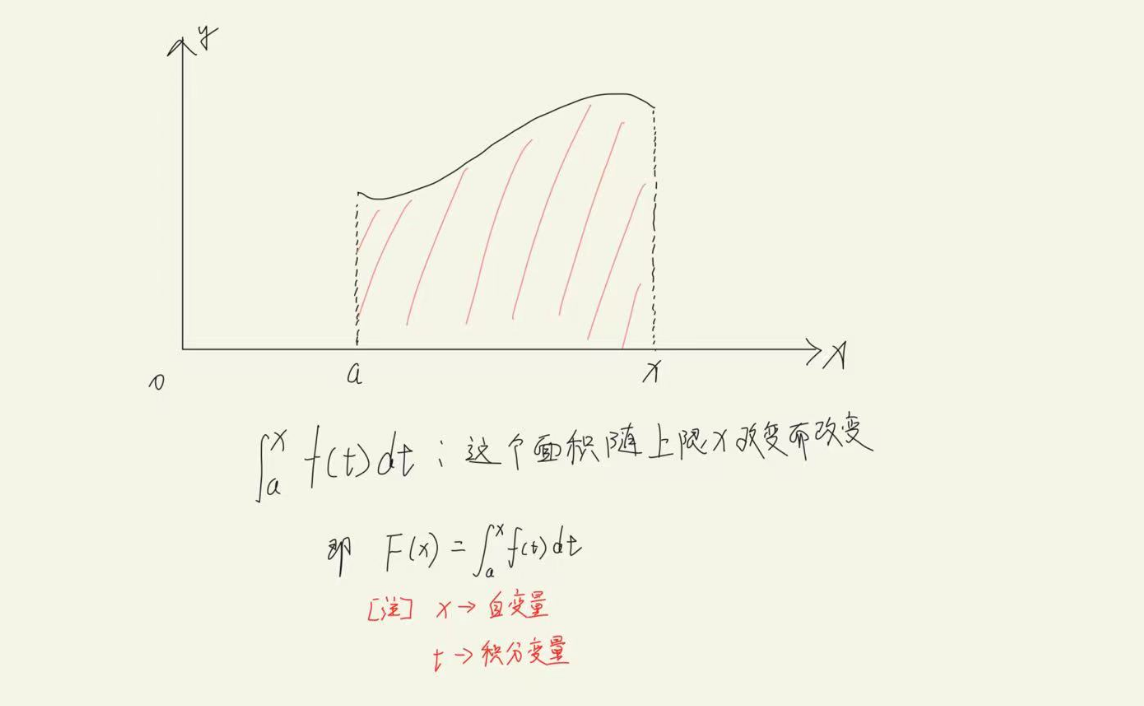 y
x
0
a
x
∫ₐˣ f(t)dt：这个面积随上限x改变而改变
即 F(x)=∫ₐˣ f(t)dt
[注] x→自变量
t→积分变量